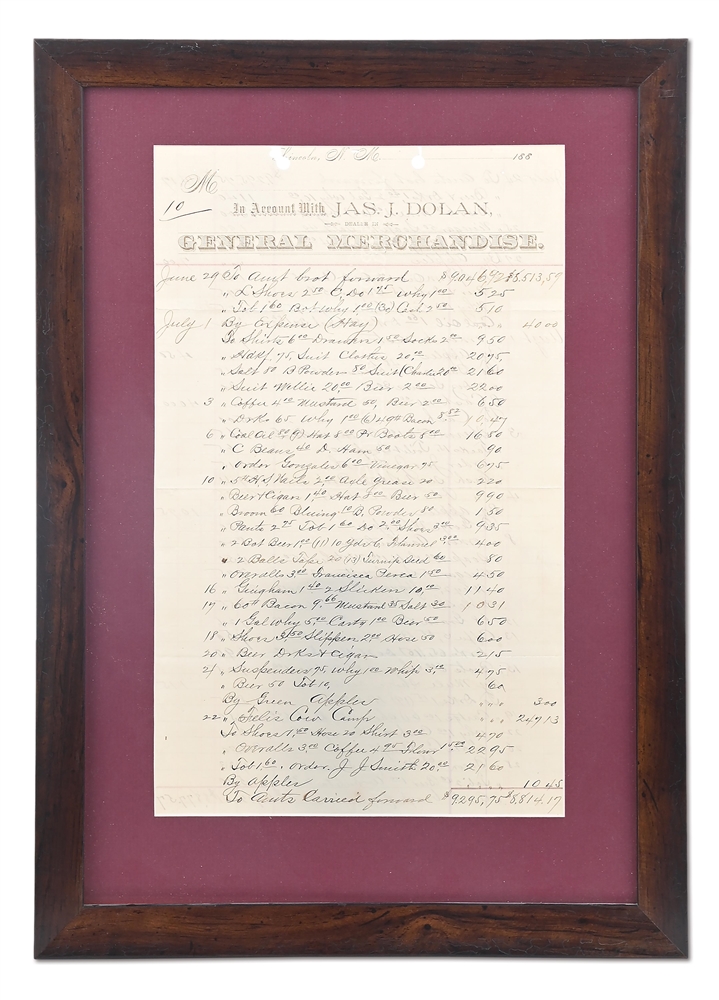 Lincoln, N. M. 188
M
10 In Account With JAS. J. DOLAN,
DEALER IN
GENERAL MERCHANDISE.
June 29 To Amt brot forward $9046,92 $8,513,59
" L Shoes 2 50 C, Do 1 75 Why 1 00 525
" Tob 1 60 Bot Why 1 00 (30) Coal 2 50 510
July 1 By Expense (Hay) " 40 00
To Shirts 6 00 Drawers 1 50 Socks 2 00 9 50
" Hdkf. 75, Suit Clothes 20,00 20 75
" Salt 80 B Powders 80 Suit (Charlie 20 00 21 60
" Suit Willie 20,00 Beer 2 00 22 00
3 " Coffee 4 00 Mustard 50, Beer 2 00 6 50
" Drks 65 Why 1 00 (6) 49# Bacon 8.82 10,47
6 " Coal Oil 80 (9) Hat 8 00 Pr Boots 8 00 16 80
" C Beans 40 D. Ham 50 90
" Order Gonzales 6 00 Vinegar 75 6 75
10 " 5# H S. Nails 2,00 Axle Grease 20 2 20
" Beer & Cigars 1 40 Hat 8 00 Beer 50 9 90
" Broom 60 Bluing 10 B. Powder 80 1 50
" Pants 2 95 Tob 1 60 Do 2 00 Shoes 3 00 9 35
" 2 Bot Beer 1 00 (11) 10 Yds C. Flannel 3 00 4 00
" 2 Balls Tape 20 (13) Turnip Seed 60 80
" Overalls 3 00 Francisca Perea 1 50 4 50
16 " Gingham 1 40 2 Slickers 10,00 11 40
17 " 60# Bacon 9.66 Mustard 35 Salt 30 10 31
" 1 Gal Why 5,00 Cartg 1 00 Beer 50 6 50
18 " Shoes 3,50 Slippers 2,00 Hose 50 6 00
20 " Beer Drks & Cigar 2 15
21 " Suspenders 75, Why 1 00 Whip 3,00 4 75
" Beer 50 Tob 10, 60
By Green Apples " " " 3 00
22 " Felis Cow Camp " " " 249 13
To Shoes 1,50 Hose 20 Shirt 3 00 4 70
" Overalls 3,00 Coffee 4 95 Flour 15,00 22 95
" Tob 1 60, Order J J Smith 20,00 21 60
By Apples 10 45
To Amts Carried forward $9295,75 $8,814.17